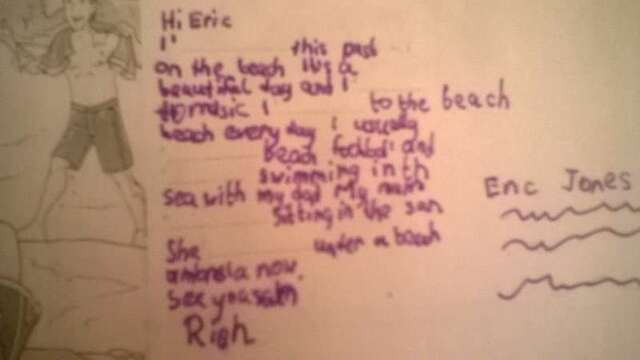 Hi Eric
I' this past
on the beach It's a
beautiful day and I'
to music I to the beach
beach every day I usually
beach football and
swimming in th
sea with my dad My mum
sitting in the sun
She under a beach
umbrela now.
see you soon
Eric Jones